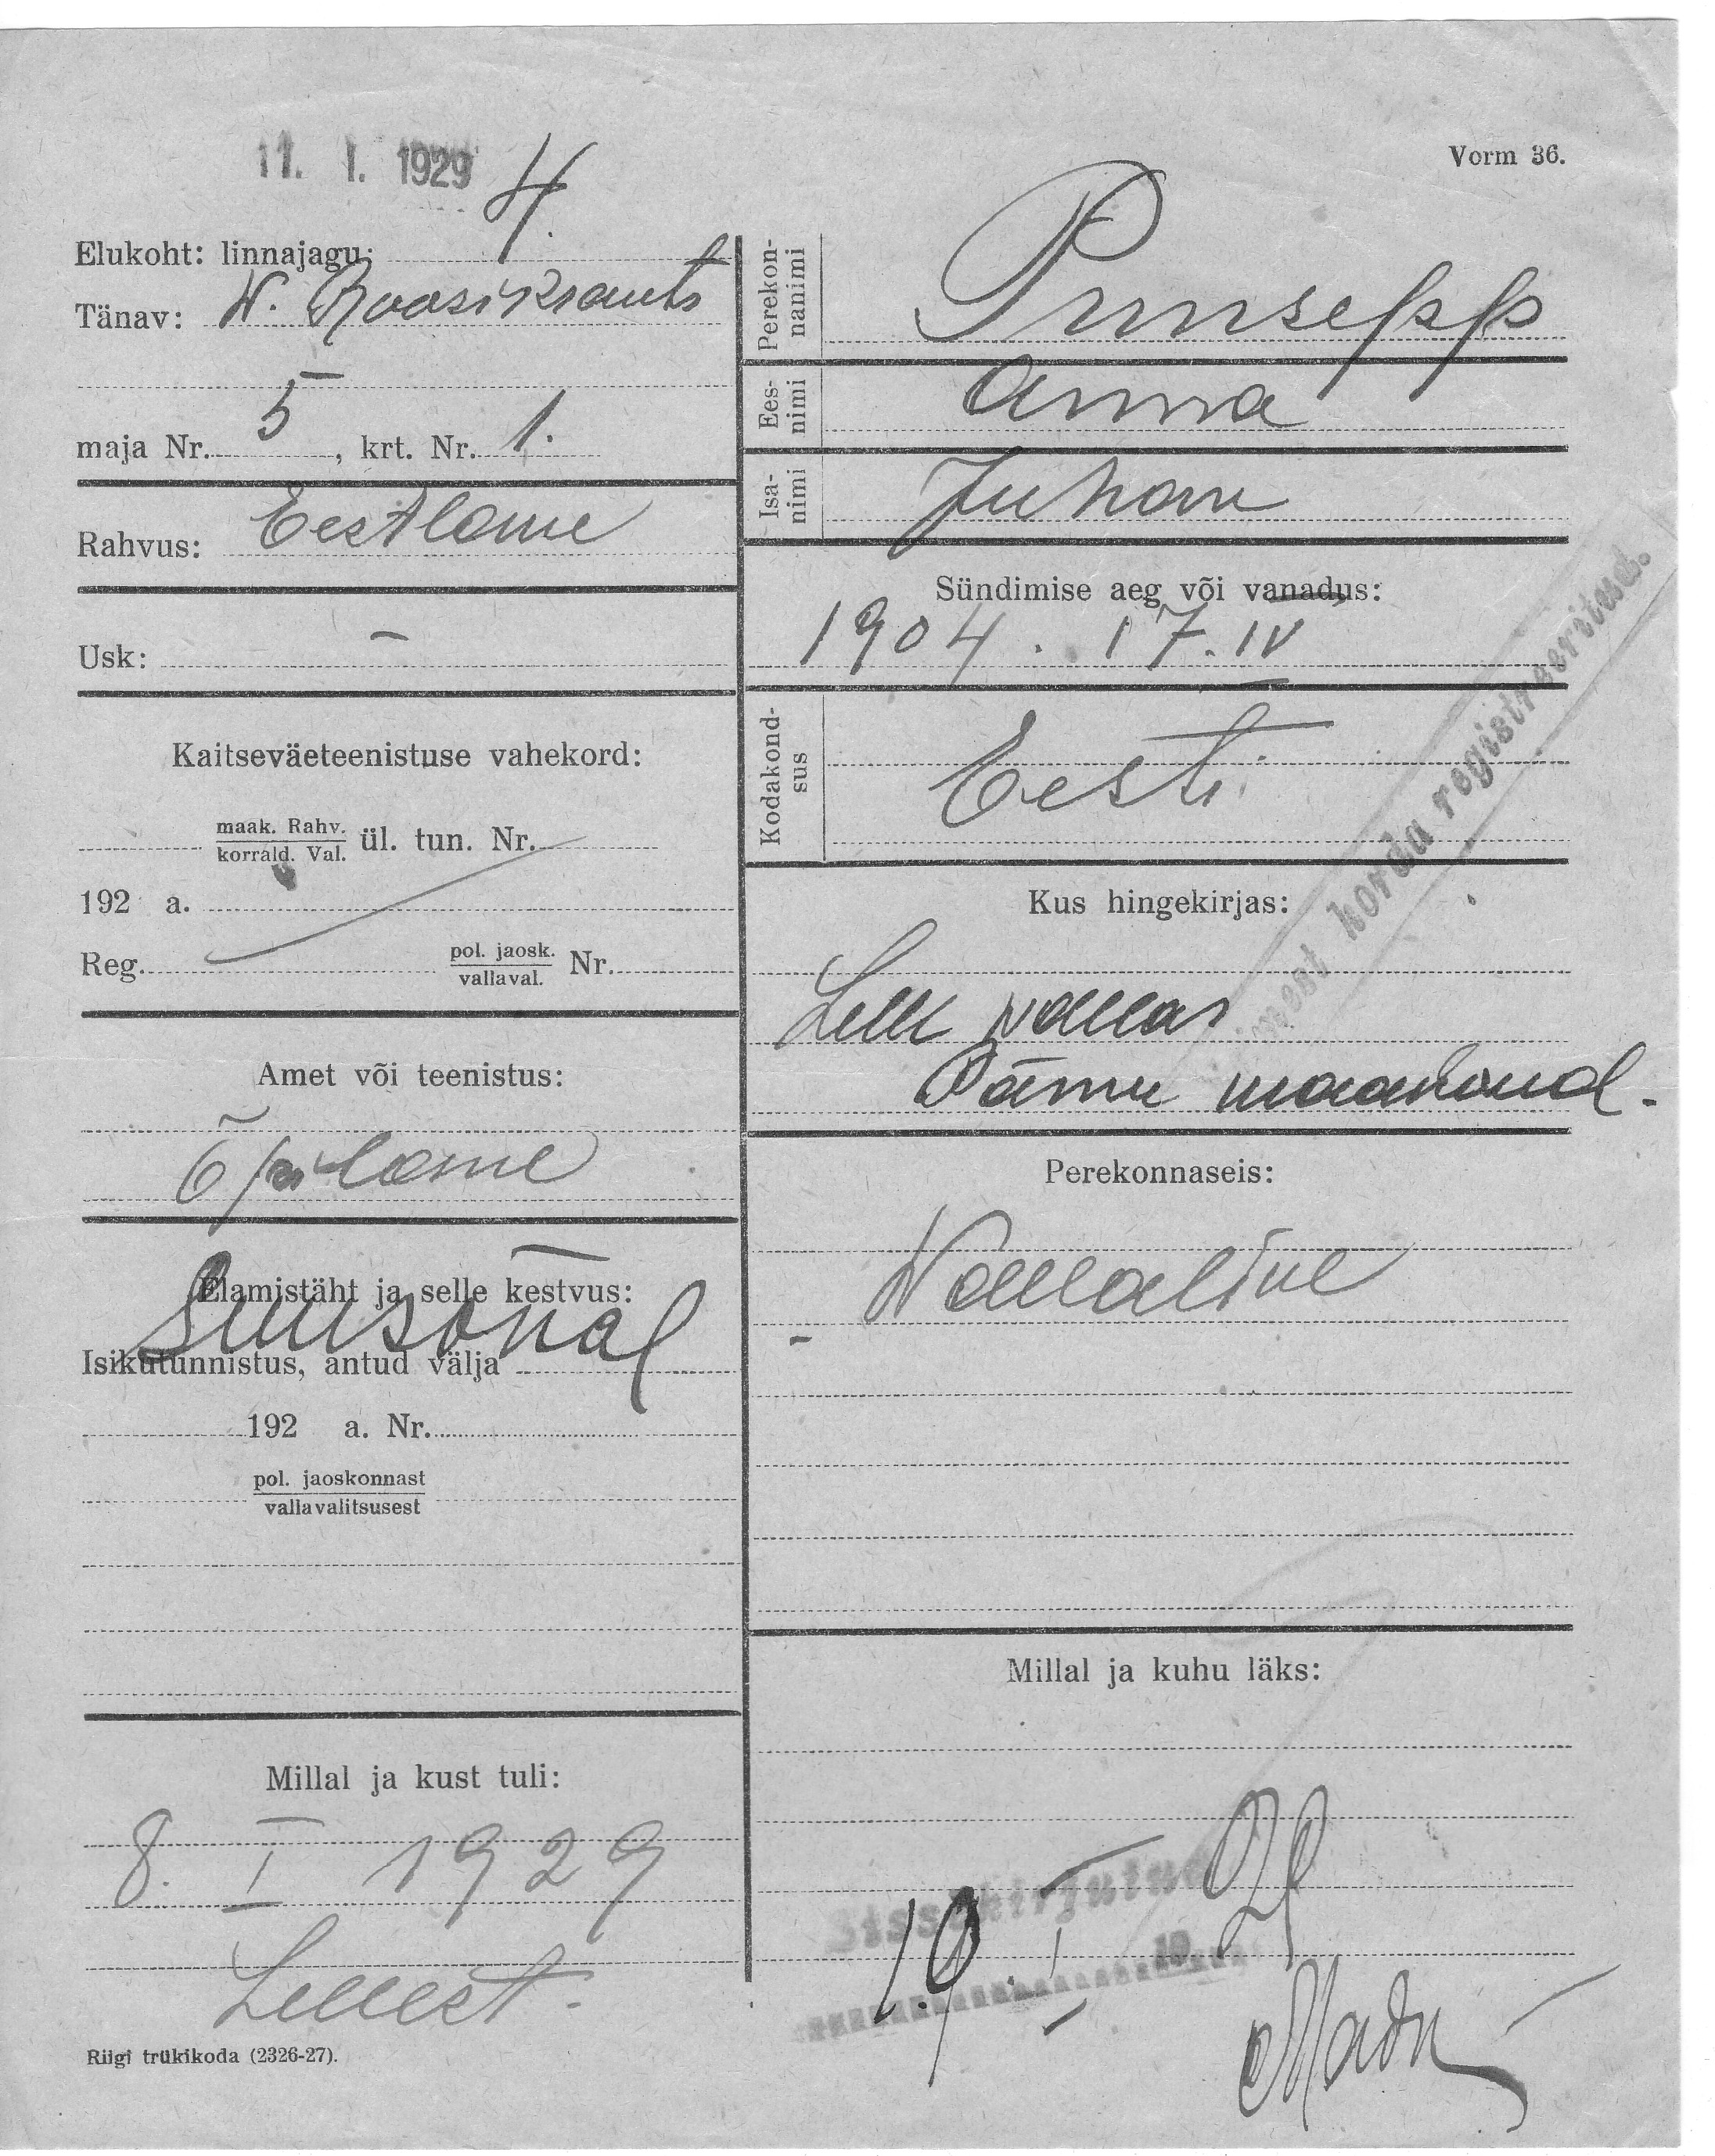 11. I. 1929
Vorm 36.
Elukoht: linnajagu: 4.
Tänav: W. Roosikrants
maja Nr. 5, krt. Nr. 1.
Rahvus: Eestlane
Usk: –
Kaitseväeteenistuse vahekord:
maak. Rahv.
korrald. Val. ül. tun. Nr.
192 a.
Reg. pol. jaosk.
vallaval. Nr.
Amet või teenistus:
Õpilane
Elamistäht ja selle kestvus:
Suusõnal
Isikutunnistus, antud välja
192 a. Nr.
pol. jaoskonnast
vallavalitsusest
Millal ja kust tuli:
8. I 1929
Lellest.
Riigi trükikoda (2326-27).
Perekon-
nanimi
Ees-
nimi
Anna
Isa-
nimi
Juhan
Sündimise aeg või vanadus:
1904. 17. IV
Kodakond-
sus
Eesti
Kus hingekirjas:
Lelle vallas
Pärnu maakond.
Perekonnaseis:
Wallaline
Millal ja kuhu läks:
Sissekirjutud
19. I
korda registreeritud.